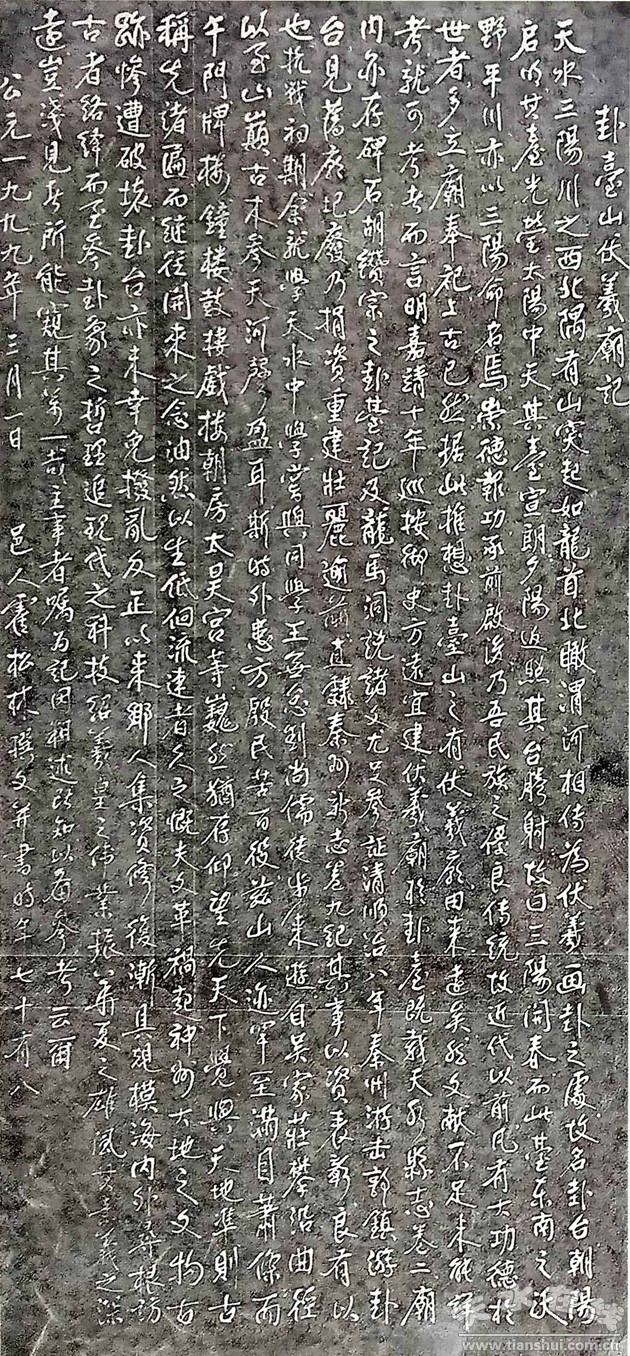 卦臺山伏羲廟記
天水三陽川之西北隅有山突起如龍首北瞰渭河相傳為伏羲画卦之處故名卦台朝陽
启明其臺光瑩太陽中天其臺宣朗夕陽返照其台騰射故曰三陽開泰而此臺東南之沃
野平川亦以三陽命名焉崇德報功承前啟後乃吾民族之優良传統故近代以前凡有大功德於
世者多立廟奉祀上古已然据此推想卦臺山之有伏羲廟由来遠矣然文献不足未能詳
考就可考者而言明嘉靖十年巡按御史方遠宜建伏羲廟於卦臺既載天水縣志卷二廟
内亦存碑石胡纘宗之卦臺記及龍馬洞說諸文尤足參証清順治八年秦州游击郭鎮游卦
台見舊廟圮廢乃捐資重建壯麗逾前直隸秦州新志卷九紀其事以資表彰良有以
也抗戰初期余就學天水中學嘗與同學王無怠刘尚儒徒步来游自吴家莊攀沿曲径
以至山巔古木參天河聲盈耳斯時外患方殷民苦百役兹山人迹罕至滿目蕭條而
午門牌楼鐘楼鼓楼戲楼朝房太昊宫等巍然猶存仰望先天下覺與天地準則古
稱先諸匾而继往開来之念油然以生低佪流連者久之慨夫文革禍起神州大地之文物古
跡慘遭破壞卦台亦未幸免撥亂反正以来鄉人集資修復漸具規模海内外尋根訪
古者絡繹而至參卦象之哲理追現代之科技紹羲皇之偉業振華夏之雄風其意義之深
遠豈淺見者所能窺其萬一哉主事者嘱为記因粗述所知以備參考云爾
公元一九九九年三月一日 邑人霍松林撰文并書時年七十有八
www.tianshui.com.cn